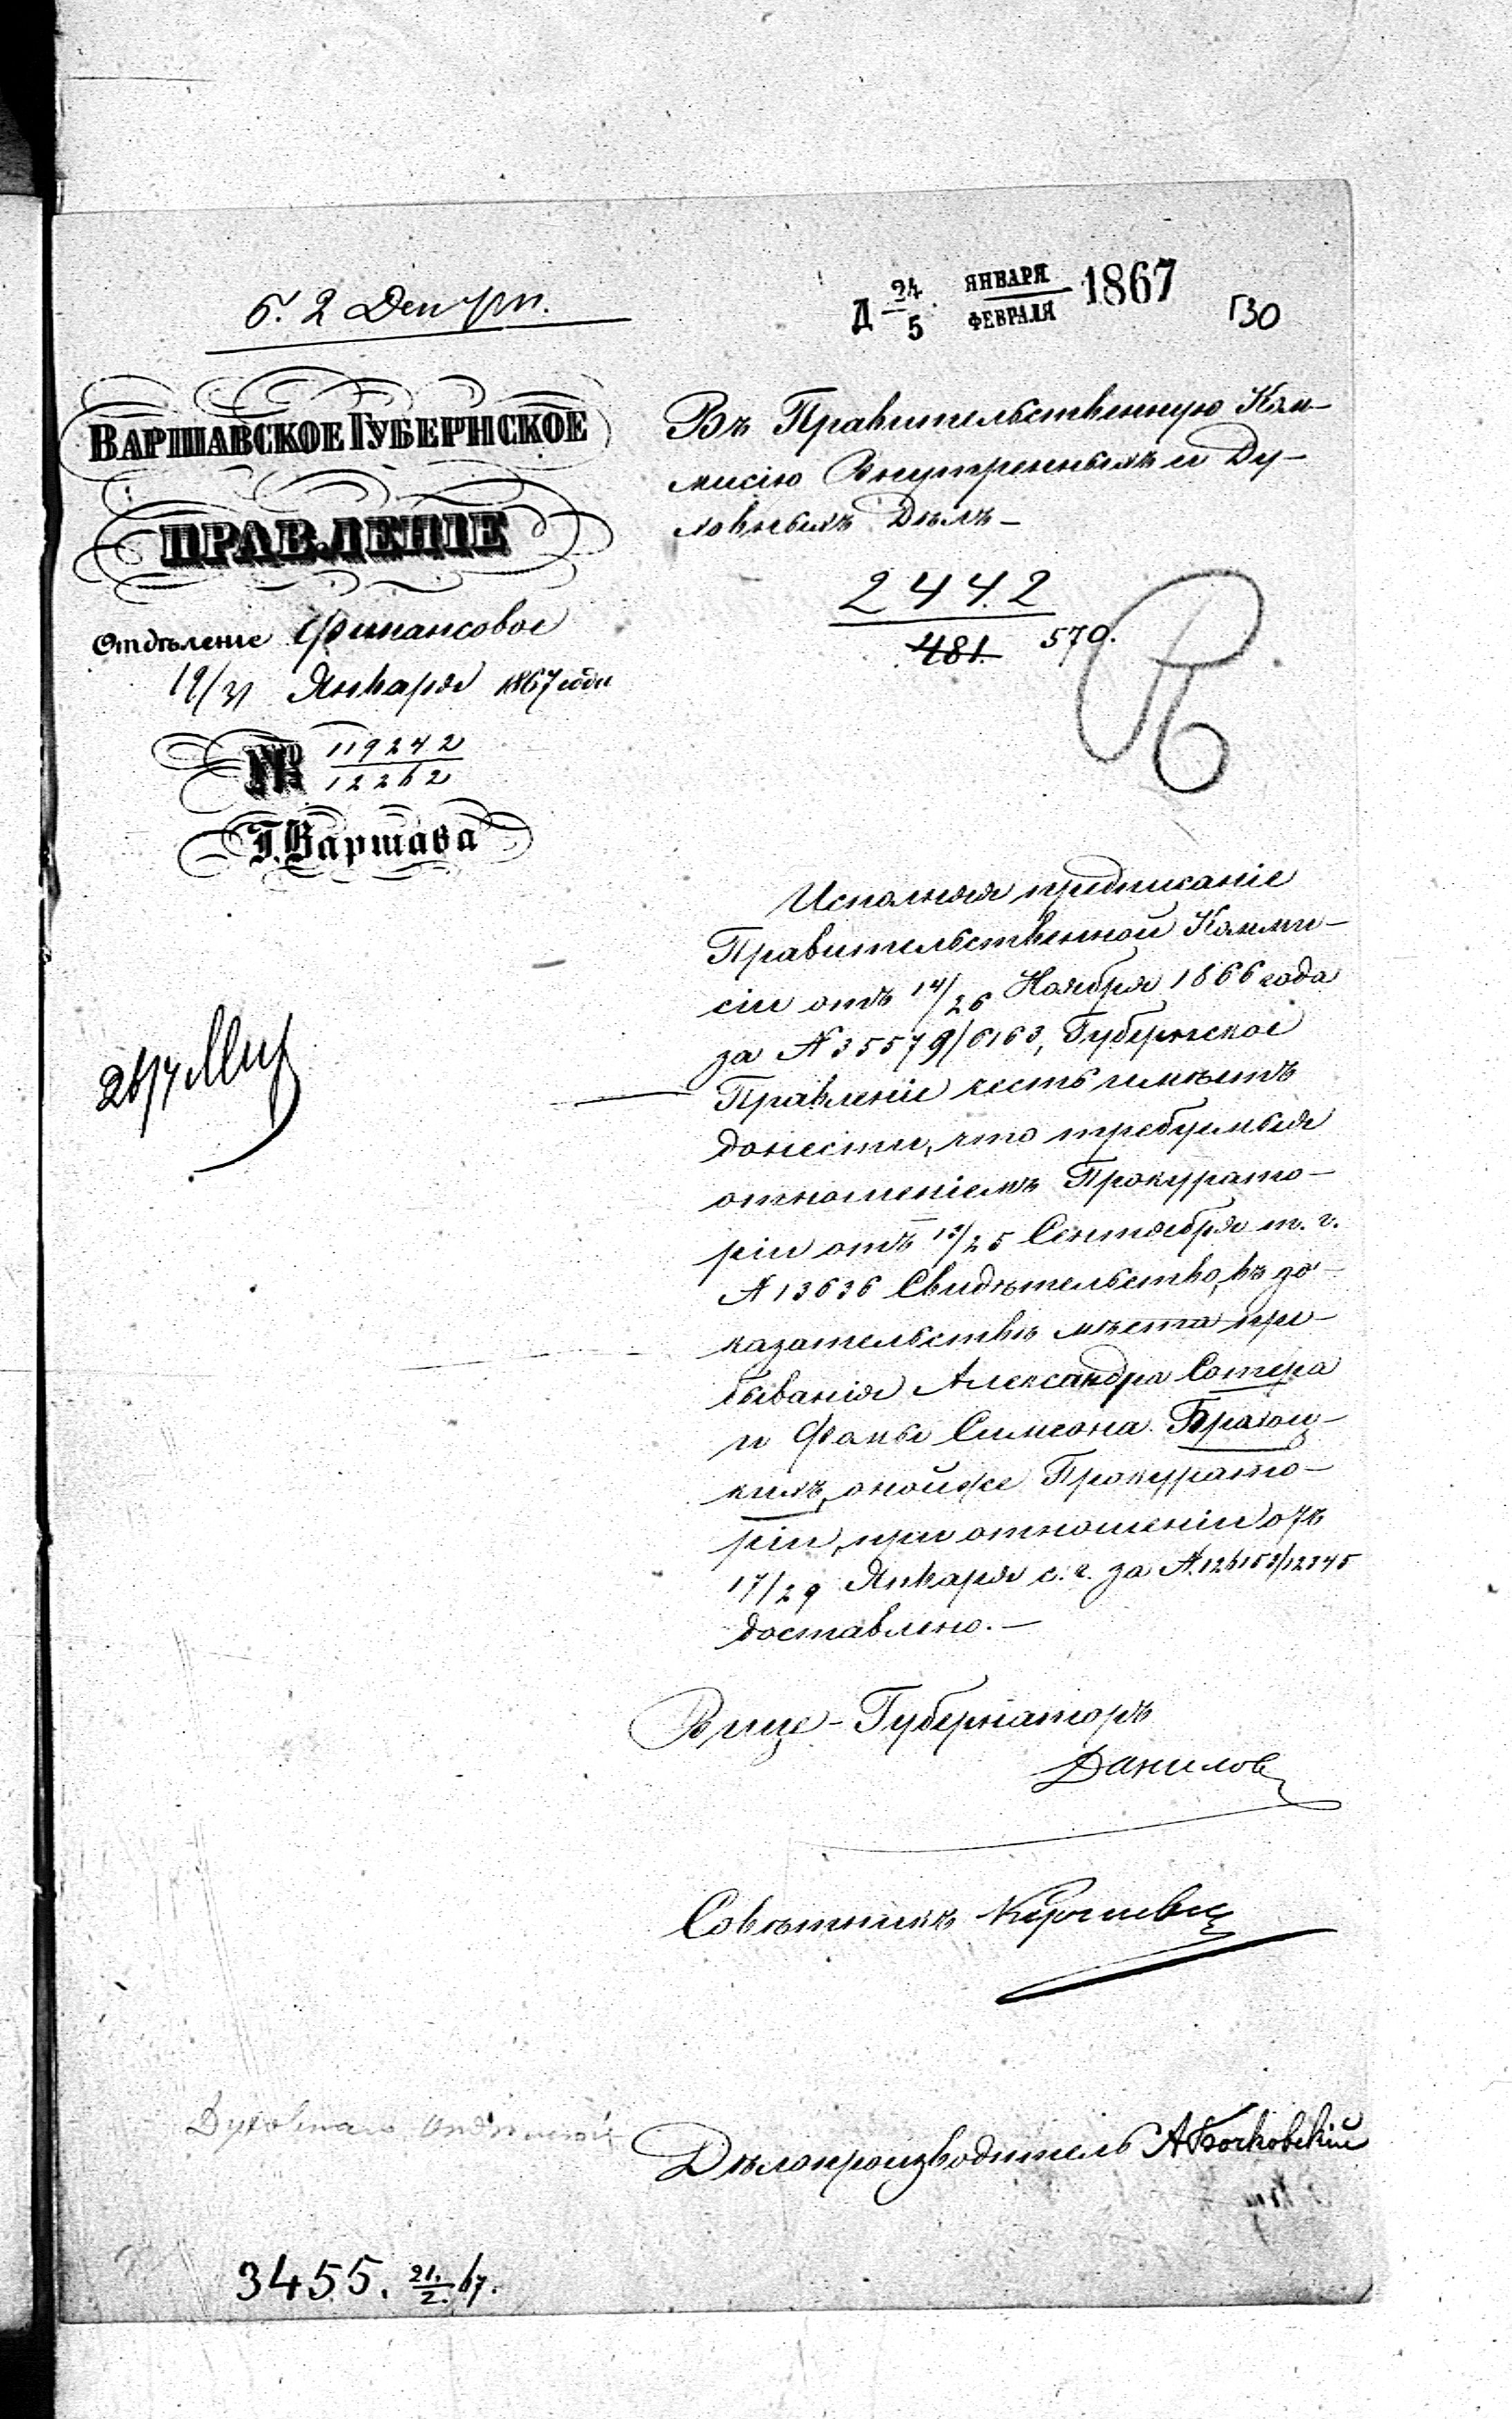 Д 24/5 ЯНВАРЯ/ФЕВРАЛЯ 1867
130
ВАРШАВСКОЕ ГУБЕРНСКОЕ
ПРАВЛЕНІЕ
Отдѣленіе Финансовое
19/31 Января 1867 года
№ 119242/12262
Г. Варшава
Въ Правительственную Ком-
мисію Внутреннихъ и Ду-
ховныхъ Дѣлъ –
2442
481. 570.
Исполняя предписаніе
Правительственной Комми-
сіи отъ 14/26 Ноября 1866 года
за № 35579/6163, Губернское
Правленіе честь имѣетъ
донести, что требуемыя
отношеніемъ Прокурато-
ріи отъ 13/25 Сентября т. г.
№ 13636 Свидѣтельство, въ до-
казательствѣ мѣста пре-
быванія Александра Сотера
и Фомы Симеона
кихъ, онойже Прокурато-
ріи, при отношеніи отъ
17/29 Января с. г. за №
доставлено. –
Вице-Губернаторъ
Данилов
Совѣтникъ
Дѣлопроизводитель А Бочковскій
3455. 21./2. 67.